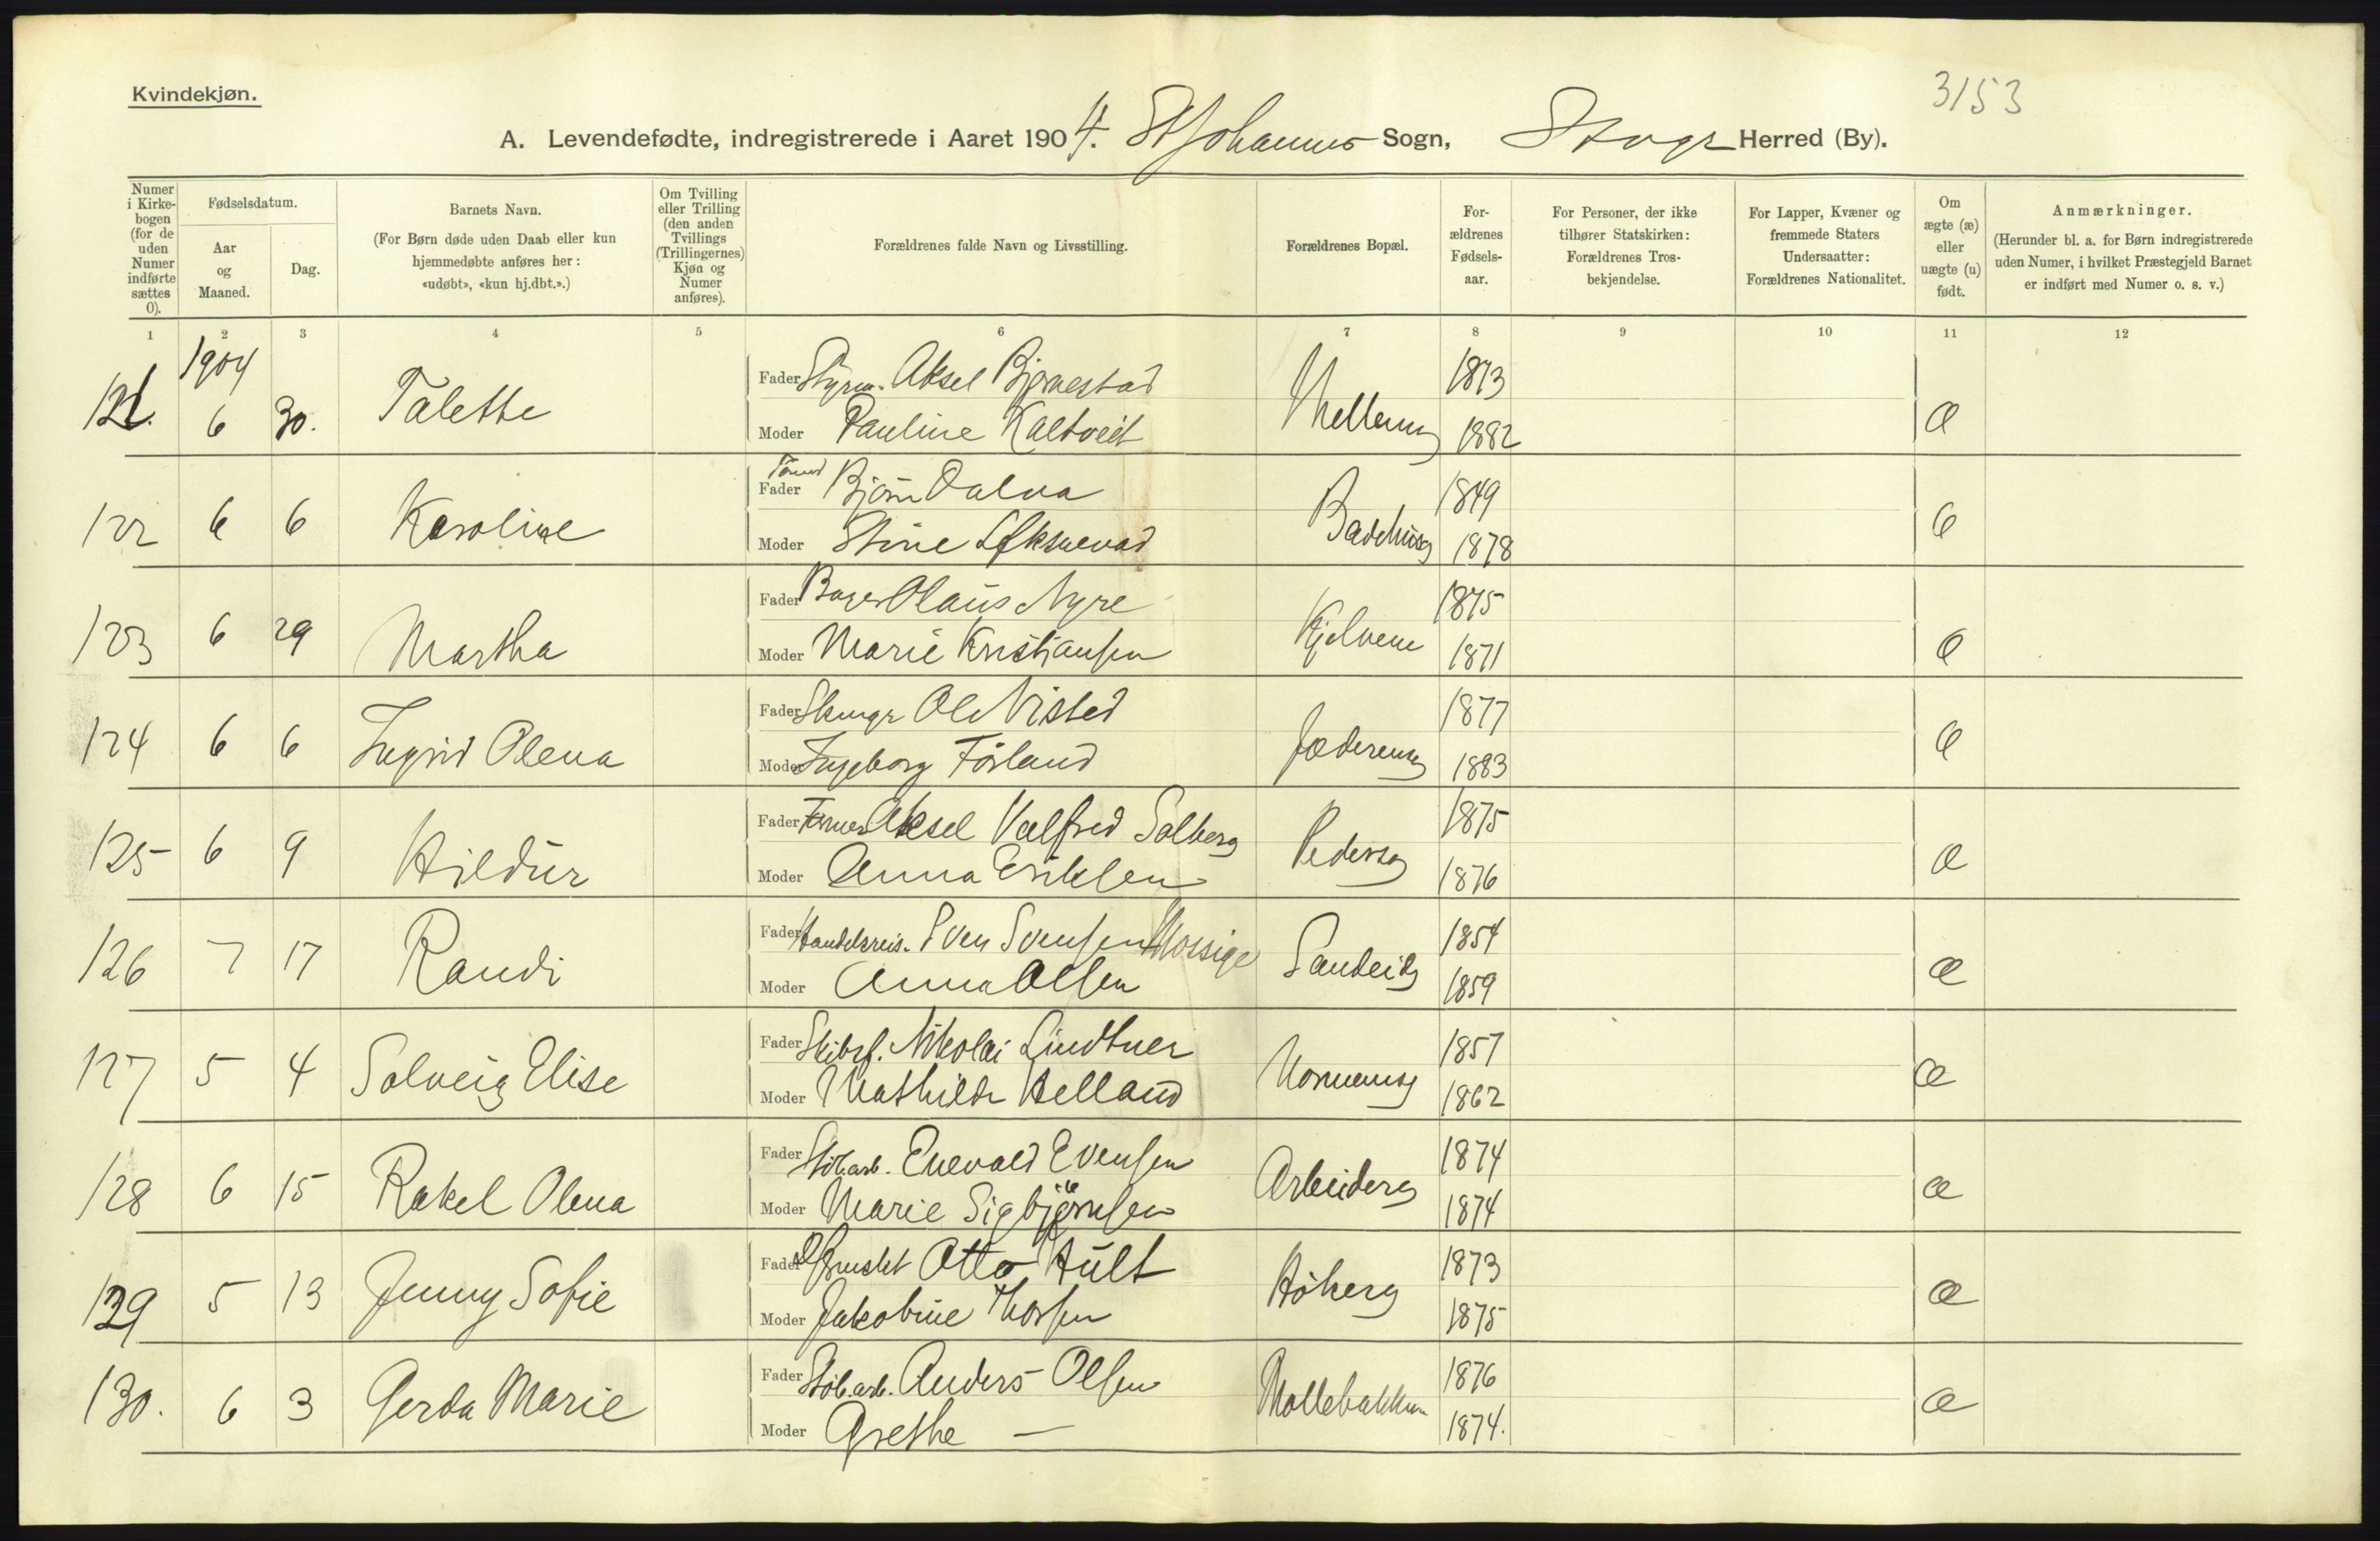 Kvindekjøn.
3153
A. Levendefødte, indregistrerede i Aaret 1904. St Johannes Sogn, Stvgr Herred (By).
Numer i Kirke-bogen (for de uden Numer indførte sættes 0).
Fødselsdatum.
Aar og Maaned.
Dag.
Barnets Navn.
(For Børn døde uden Daab eller kun hjemmedøbte anføres her: «udøbt», «kun hj.dbt.».)
Om Tvilling eller Trilling (den anden Tvillings (Trillingernes) Kjøn og Numer anføres).
Forældrenes fulde Navn og Livsstilling.
Forældrenes Bopæl.
For-ældrenes Fødsels-aar.
For Personer, der ikke tilhører Statskirken: Forældrenes Tros-bekjendelse.
For Lapper, Kvæner og fremmede Staters Undersaatter: Forældrenes Nationalitet.
Om ægte (æ) eller uægte (u) født.
Anmærkninger.
(Herunder bl. a. for Børn indregistrerede uden Numer, i hvilket Præstegjeld Barnet er indført med Numer o. s. v.)
1 2 3 4 5 6 7 8 9 10 11 12
1904
121. 6 30. Talette Fader Styrm. Aksel Bjørnestad 1873 æ
Moder Pauline Kaltveit 1882
122 6 6 Karoline Fader Bjørn Dalva 1849 æ
Moder Stine Løksnevad Badehusg 1878
123 6 29 Martha Fader Bager Olaus Nyre Kjelvene 1875 æ
Moder Marie Kristiansen 1871
124 6 6 Ingrid Olena Fader Skomgr Ole Visted Jæderensg 1877 æ
Moder Ingeborg Førland 1883
125 6 9 Hildur Fader Former Aksel Valfred Solberg Pedersg 1875 æ
Moder Anna Eriksen 1876
126 7 17 Randi Fader Handelsreis. Sven Svensen Mossige Sandeidg 1854 æ
Moder Anna Olsen 1859
127 5 4 Solveig Elise Fader Skibsf. Nikolai Lindtner Normansg 1857 æ
Moder Mathilde Helland 1862
128 6 15 Rakel Olena Fader Støb.arb. Enevald Evensen Arbeiderg 1874 æ
Moder Marie Sigbjørnsen 1874
129 5 13 Jenny Sofie Fader Otto Hult Høkerg 1873 æ
Moder Jakobine Thorsen 1875
130. 6 3 Gerda Marie Fader Støb.arb. Anders Olsen Møllebakken 1876 æ
Moder Grethe — 1874.